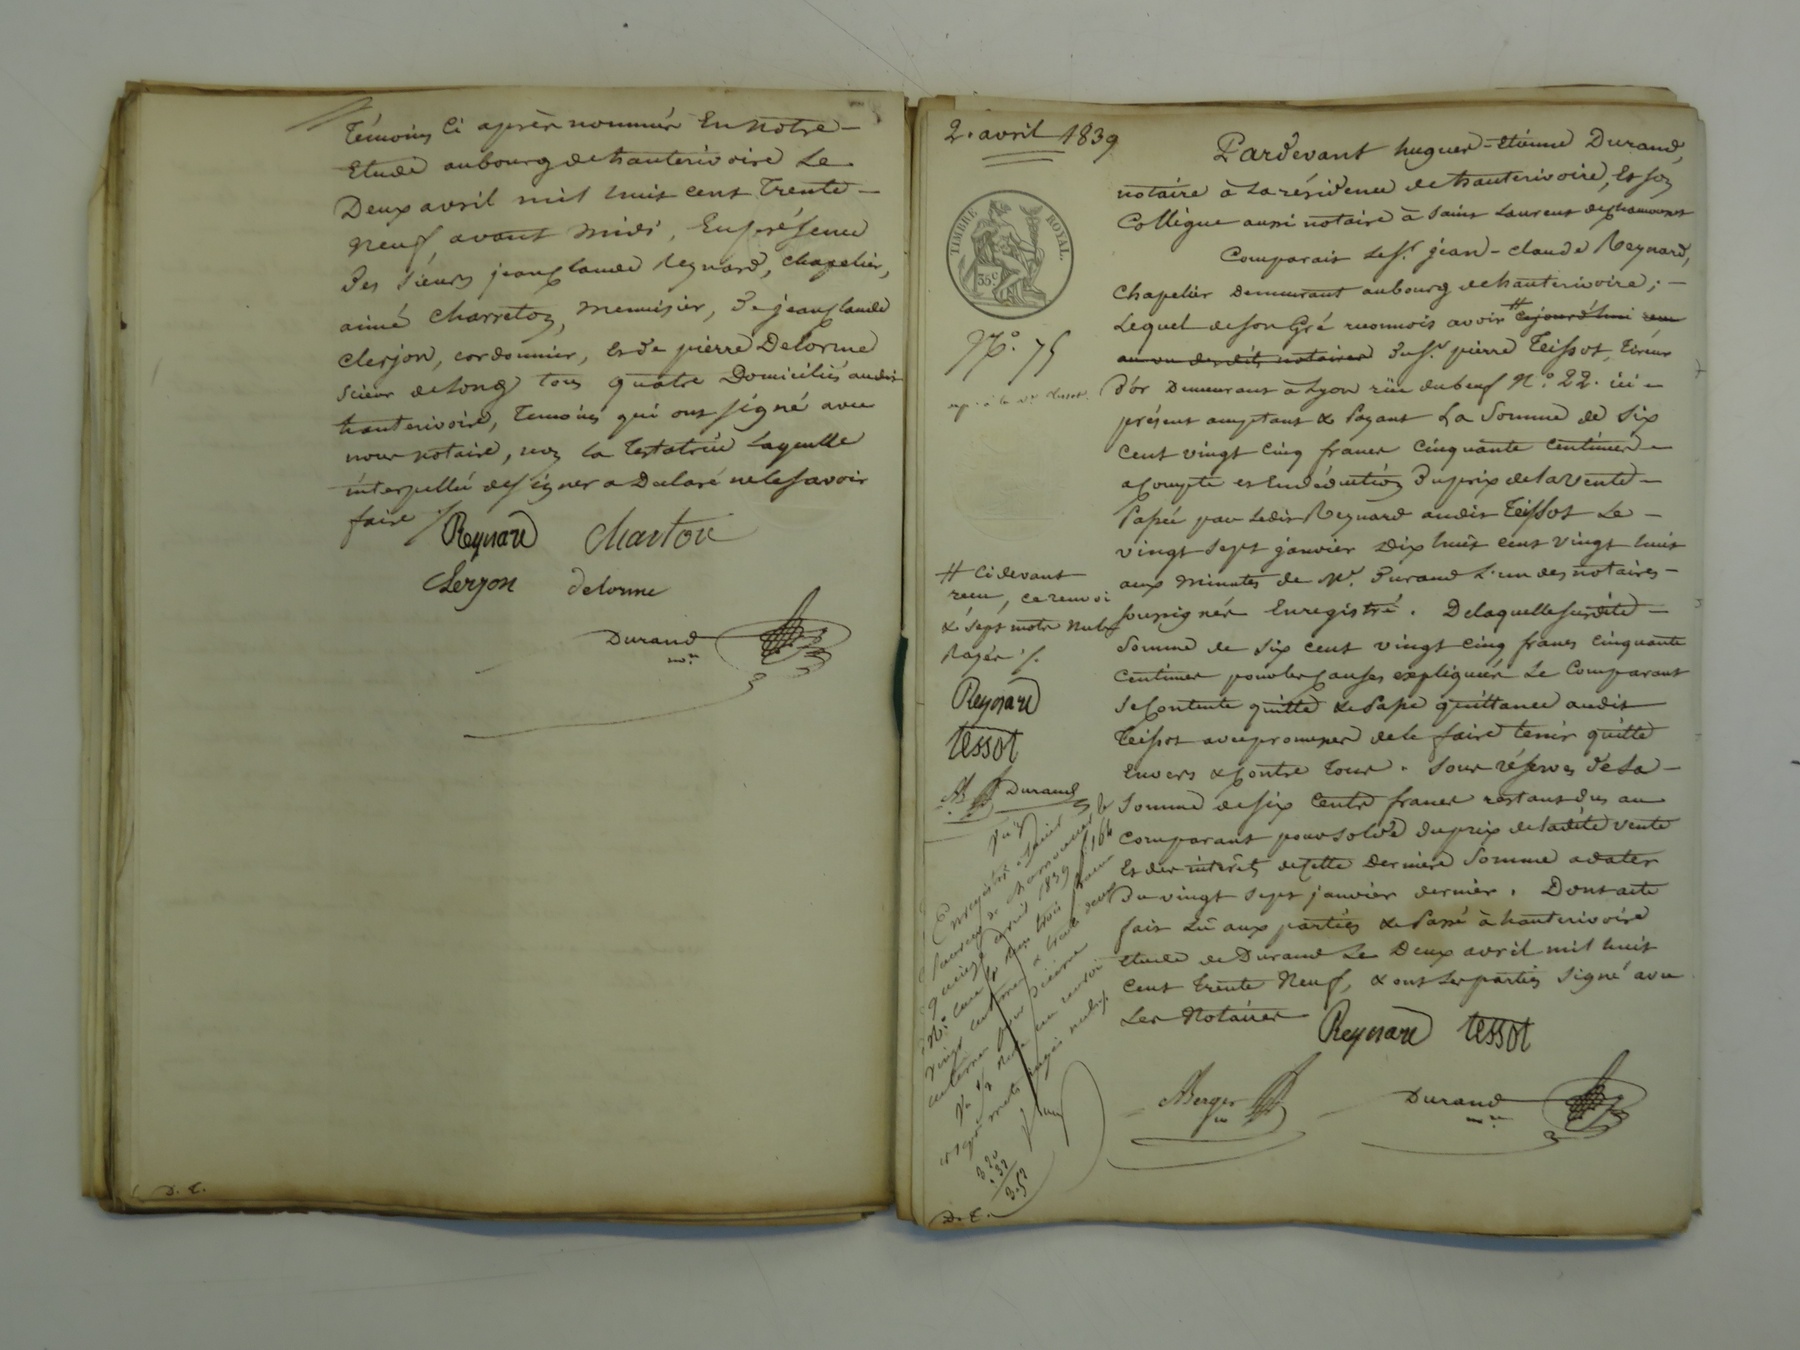 témoins ci après nommés En notre
Etude au bourg de hauterivoire Le
Deux avril mil huit cent Trente
neuf, avant midi, En présence
Des sieurs jean Claude Reynard, chapelier,
aimé Charreton, menuisier, De jean Claude
Clerjon, cordonnier, Et De pierre Delorme
scieur de long tous quatre Domiciliés audit
hauterivoire, Temoins qui ont signé avec
nous notaire, non la Testatrice Laquelle
interpellée de signer a Declaré ne le savoir
faire /.
Reynard Charton
Clerjon delorme
Durand
nre
D. E.
2. avril 1839
TIMBRE ROYAL.
35 c
N.o 75
Pardevant hugues-etienne Durand,
notaire à La résidence de hauterivoire, Et son
Collègue aussi notaire à Saint Laurent de chamousset
Comparait Le Sr. jean-claude Reynard,
Chapelier Demeurant au bourg de hauterivoire; -
Lequel de son Gré reconnois avoir # cejourd'hui reçu
au vu desdits notaires Du Sr. pierre Teissot, tireur
D'or Demeurant à Lyon rüe du beuf N.o 22. ici -
présent acceptant & Payant La Somme de Six
Cent vingt Cinq francs Cinquante Centimes -
a Compte et En déduction Du prix de la vente -
Passée par Ledit Reynard audit Teissot Le -
vingt sept janvier Dix huit cent vingt huit
aux minutes de Me. Durand L'un des notaires -
soussignés Enregistré. De laquelle susdite -
Somme de six cent vingt cinq francs cinquante
Centimes pour les Causes expliquées Le Comparant
Se Contente quitte & Passe quittance audit
Teissot avec promesse de le faire tenir quitte
Envers & Contre Tous. Sous réserves De La -
Somme de Six Cents francs restant dus au
Comparant pour solde du prix de ladite vente
Et des intérêts de Cette Derniere Somme a dater
Du vingt sept janvier dernier. Dont acte
fait Lû aux parties & Passé à hauterivoire
étude de Durand Le Deux avril mil huit
Cent Trente Neuf, & ont Les parties Signé avec
Les Notaires
Reynard tessot
ABerger Durand
nre
# Ci devant
reçu, ce renvoi
& Sept mots nuls
Rayés /.
Reynard
tessot
AB Durand
Enregistré à Saint
Laurent de Chamousset le
quinze avril 1839 f. 166
Ro. Case 6 Reçu trois francs
vingt centimes & trente deux
centimes pour dixième
Vu
un renvoi
et sept mots rayés nuls
3 20
. 32
3. 52
D. E.